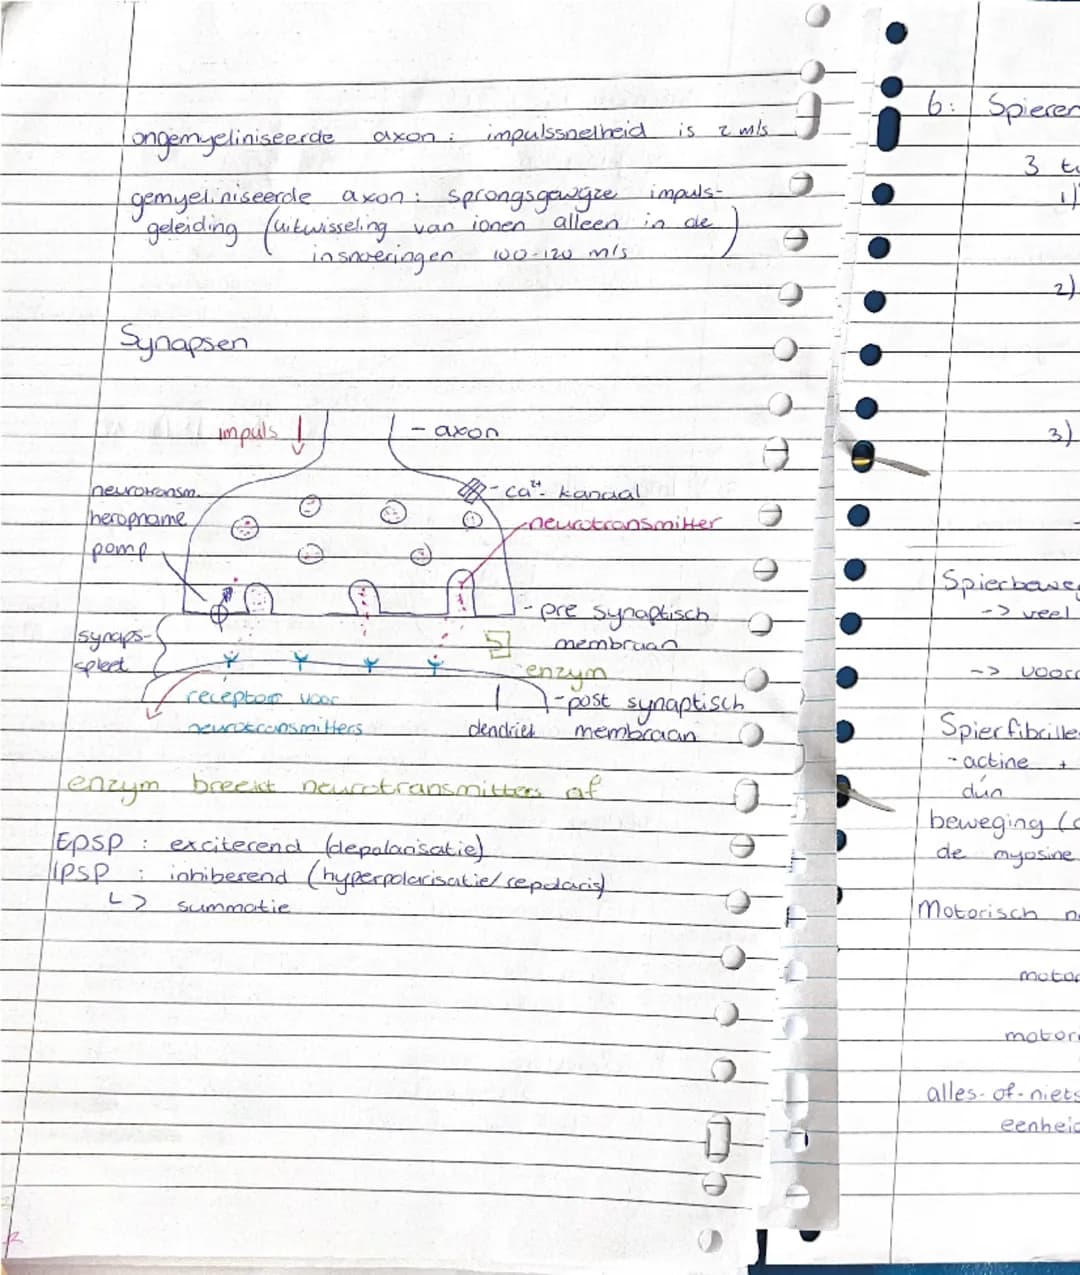 ongemyeliniseerde axon: impulssnelheid is 2 m/s
gemyeliniseerde axon: sprongsgewijze impuls-
geleiding (uitwisseling van ionen alleen in de
insnoeringen 100-120 m/s)
Synapsen
impuls
- axon
neurotransm.
heropname
pomp
- Ca²⁺- kanaal
neurotransmitter
- pre synaptisch
membraan
synaps-
spleet
enzym
receptor voor
neurotransmitters
- post synaptisch
membraan
dendriet
enzym breekt neurotransmitters af
EPSP : exciterend (depolarisatie)
IPSP : inhiberend (hyperpolarisatie/repolaris)
↳ summatie
6: Spieren
3
1)
2)
3)
-> veel
->
- actine +
dun
beweging
de myosine
Motorisch
alles-of-niets